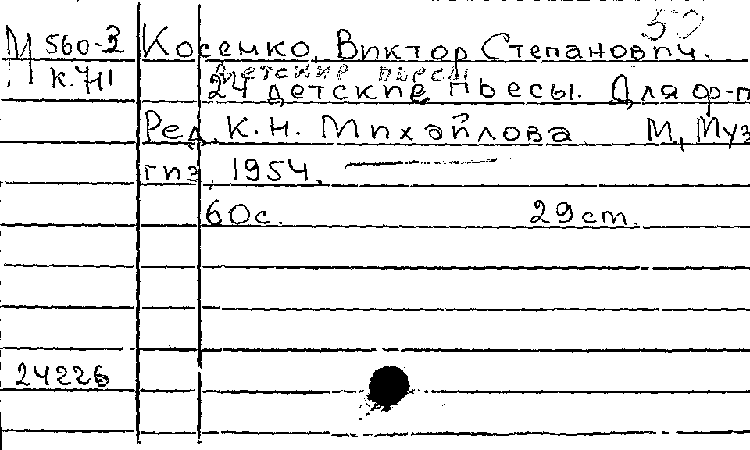 50
М 560-3 Косенко, Виктор Степанович.
К.711 Детские пьесы
24 детские пьесы. Для ф-п
Ред. К.Н. Михайлова М, Муз
гиз, 1954.
60с. 29cm.
24226